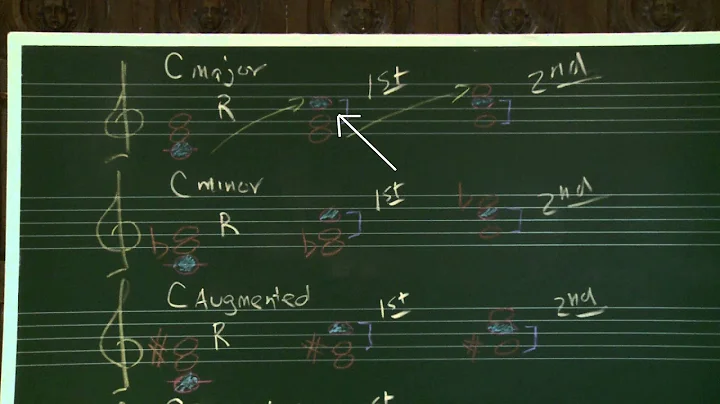 C major R 1st 2nd
C minor R 1st 2nd
♭ ♭ ♭
C Augmented R 1st 2nd
# # #